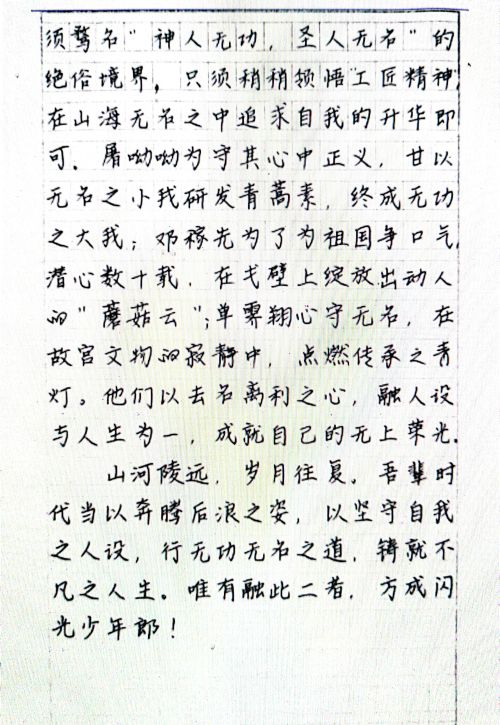 须骛名“神人无功，圣人无名”的
绝俗境界，只须稍稍领悟工匠精神，
在山海无名之中追求自我的升华即
可。屠呦呦为守其心中正义，甘以
无名之小我研发青蒿素，终成无功
之大我；邓稼先为了为祖国争口气，
潜心数十载，在戈壁上绽放出动人
的“蘑菇云”；单霁翔心守无名，在
故宫文物的寂静中，点燃传承之青
灯。他们以去名离利之心，融人设
与人生为一，成就自己的无上荣光。
山河陵远，岁月往复。吾辈时
代当以奔腾后浪之姿，以坚守自我
之人设，行无功无名之道，铸就不
凡之人生。唯有融此二者，方成闪
光少年郎！